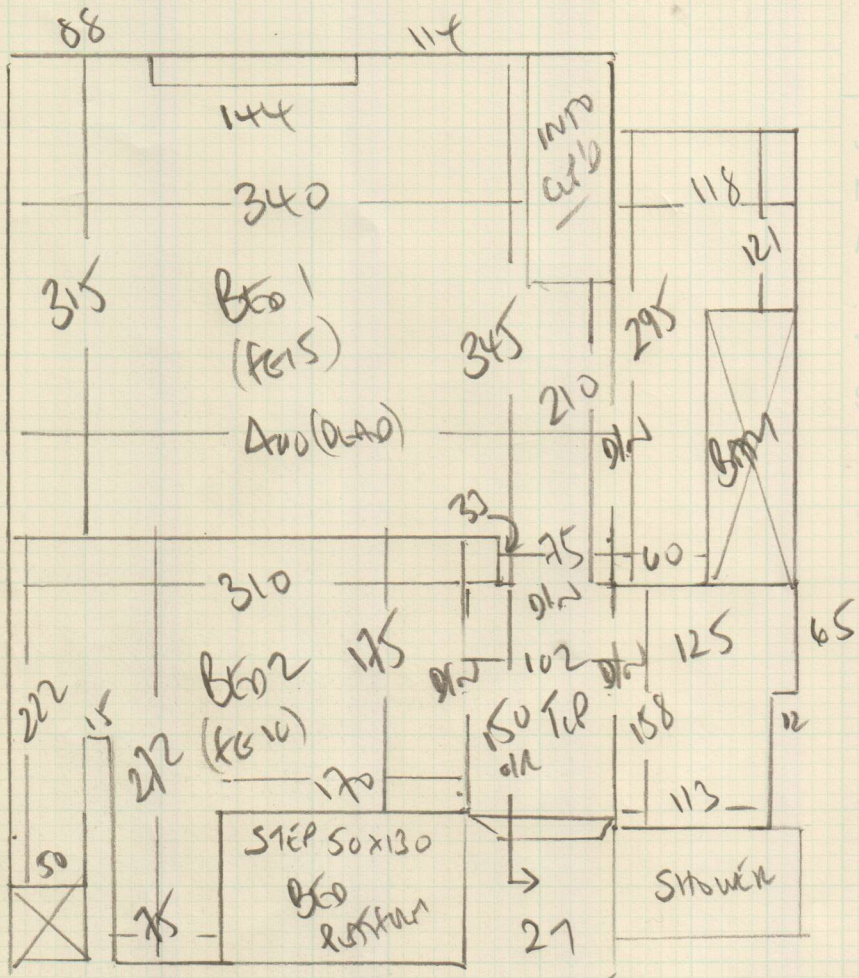 88
114
144
INTO
340
118
121
315
BED 1
(FE15)
345
295
210
400 (DEAD)
D/W
33
75
60
310
D/W
BED 2
(FE10)
175
D/W
102
D/W
125
65
222
15
272
150 TCP
158
12
170
113
STEP 50X130
BED
PLATFORM
50
75
SHOWER